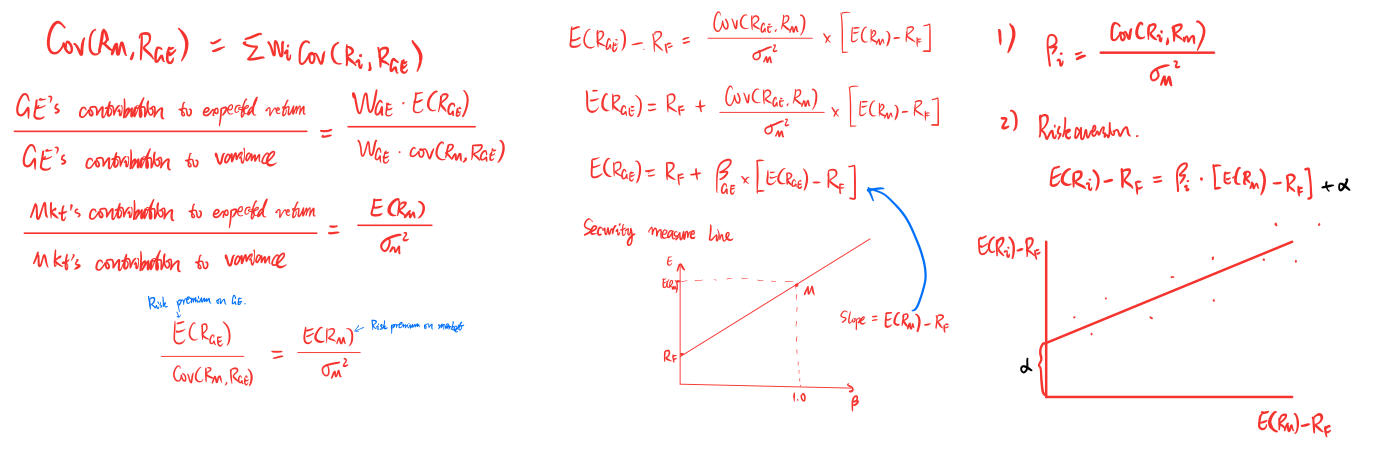 Cov(R_M, R_GE) = Σ W_i Cov(R_i, R_GE)
GE's contribution to expected return / GE's contribution to variance = W_GE · E(R_GE) / W_GE · cov(R_M, R_GE)
Mkt's contribution to expected return / Mkt's contribution to variance = E(R_M) / σ_M²
Risk premium on GE.
E(R_GE) / Cov(R_M, R_GE) = E(R_M) / σ_M²
Risk premium on market
E(R_GE) – R_F = Cov(R_GE, R_M) / σ_M² × [E(R_M) – R_F]
E(R_GE) = R_F + Cov(R_GE, R_M) / σ_M² × [E(R_M) – R_F]
E(R_GE) = R_F + β_GE × [E(R_GE) – R_F]
Security measure Line
E
E(R_M)
M
Slope = E(R_M) – R_F
R_F
1.0
β
1) β_i = Cov(R_i, R_M) / σ_M²
2) Risk aversion.
E(R_i) – R_F = β_i · [E(R_M) – R_F] + α
E(R_i) – R_F
α
E(R_M) – R_F